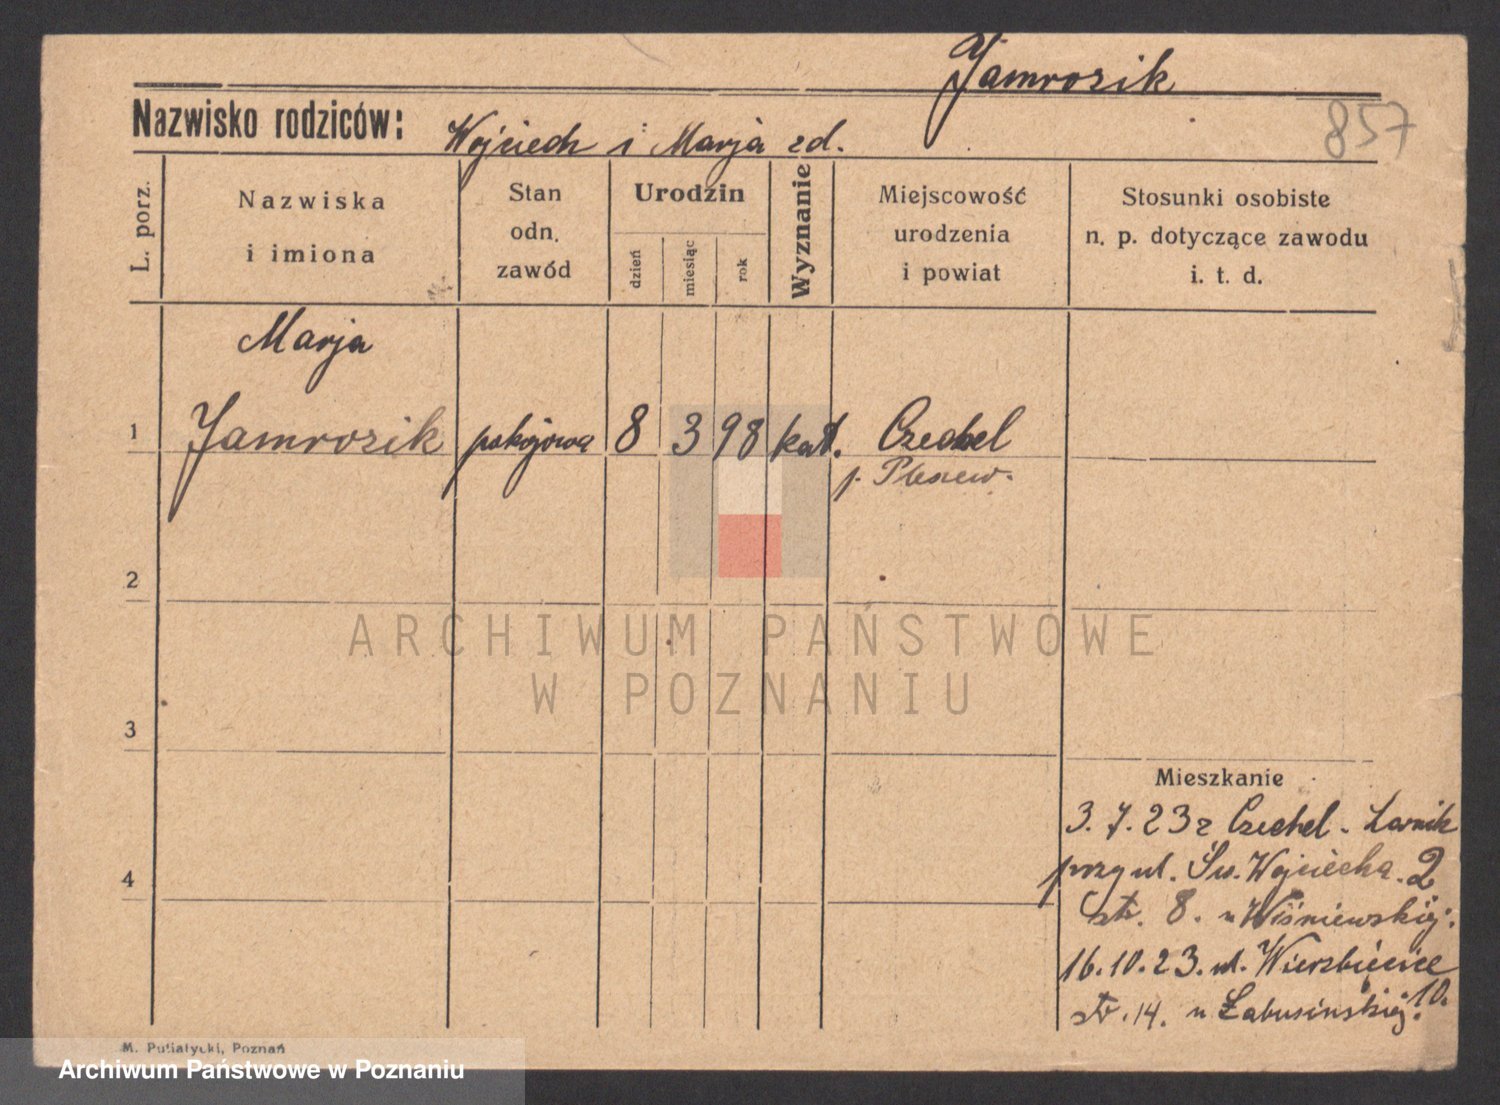 Jamrozik
857
Nazwisko rodziców: Wojciech i Marja zd.
L. porz.
Nazwiska
i imiona
Stan
odn.
zawód
Urodzin
dzień
miesiąc
rok
Wyznanie
Miejscowość
urodzenia
i powiat
Stosunki osobiste
n. p. dotyczące zawodu
i. t. d.
Marja
1 Jamrozik pokojowa 8 3 98 kat. Czechel
p. Pleszew.
2
ARCHIWUM PAŃSTWOWE
W POZNANIU
3
Mieszkanie
3. 7. 23 z Czechel -
przy ul. Św. Wojciecha. 2
str. 8. u Wiśniewskiej.
4
16.10.23. ul. Wierzbięcice
10.
str. 14. u Łabusińskiej.
M. Putiatycki, Poznań
Archiwum Państwowe w Poznaniu